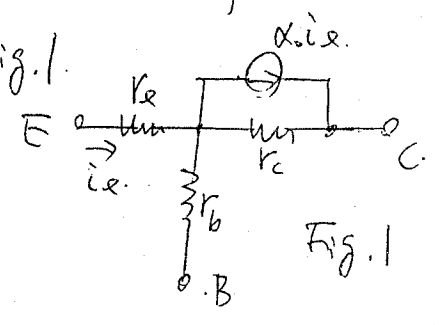 ig.1.
α.ie.
re
E
ie.
rc
C.
rb
Fig.1
.B